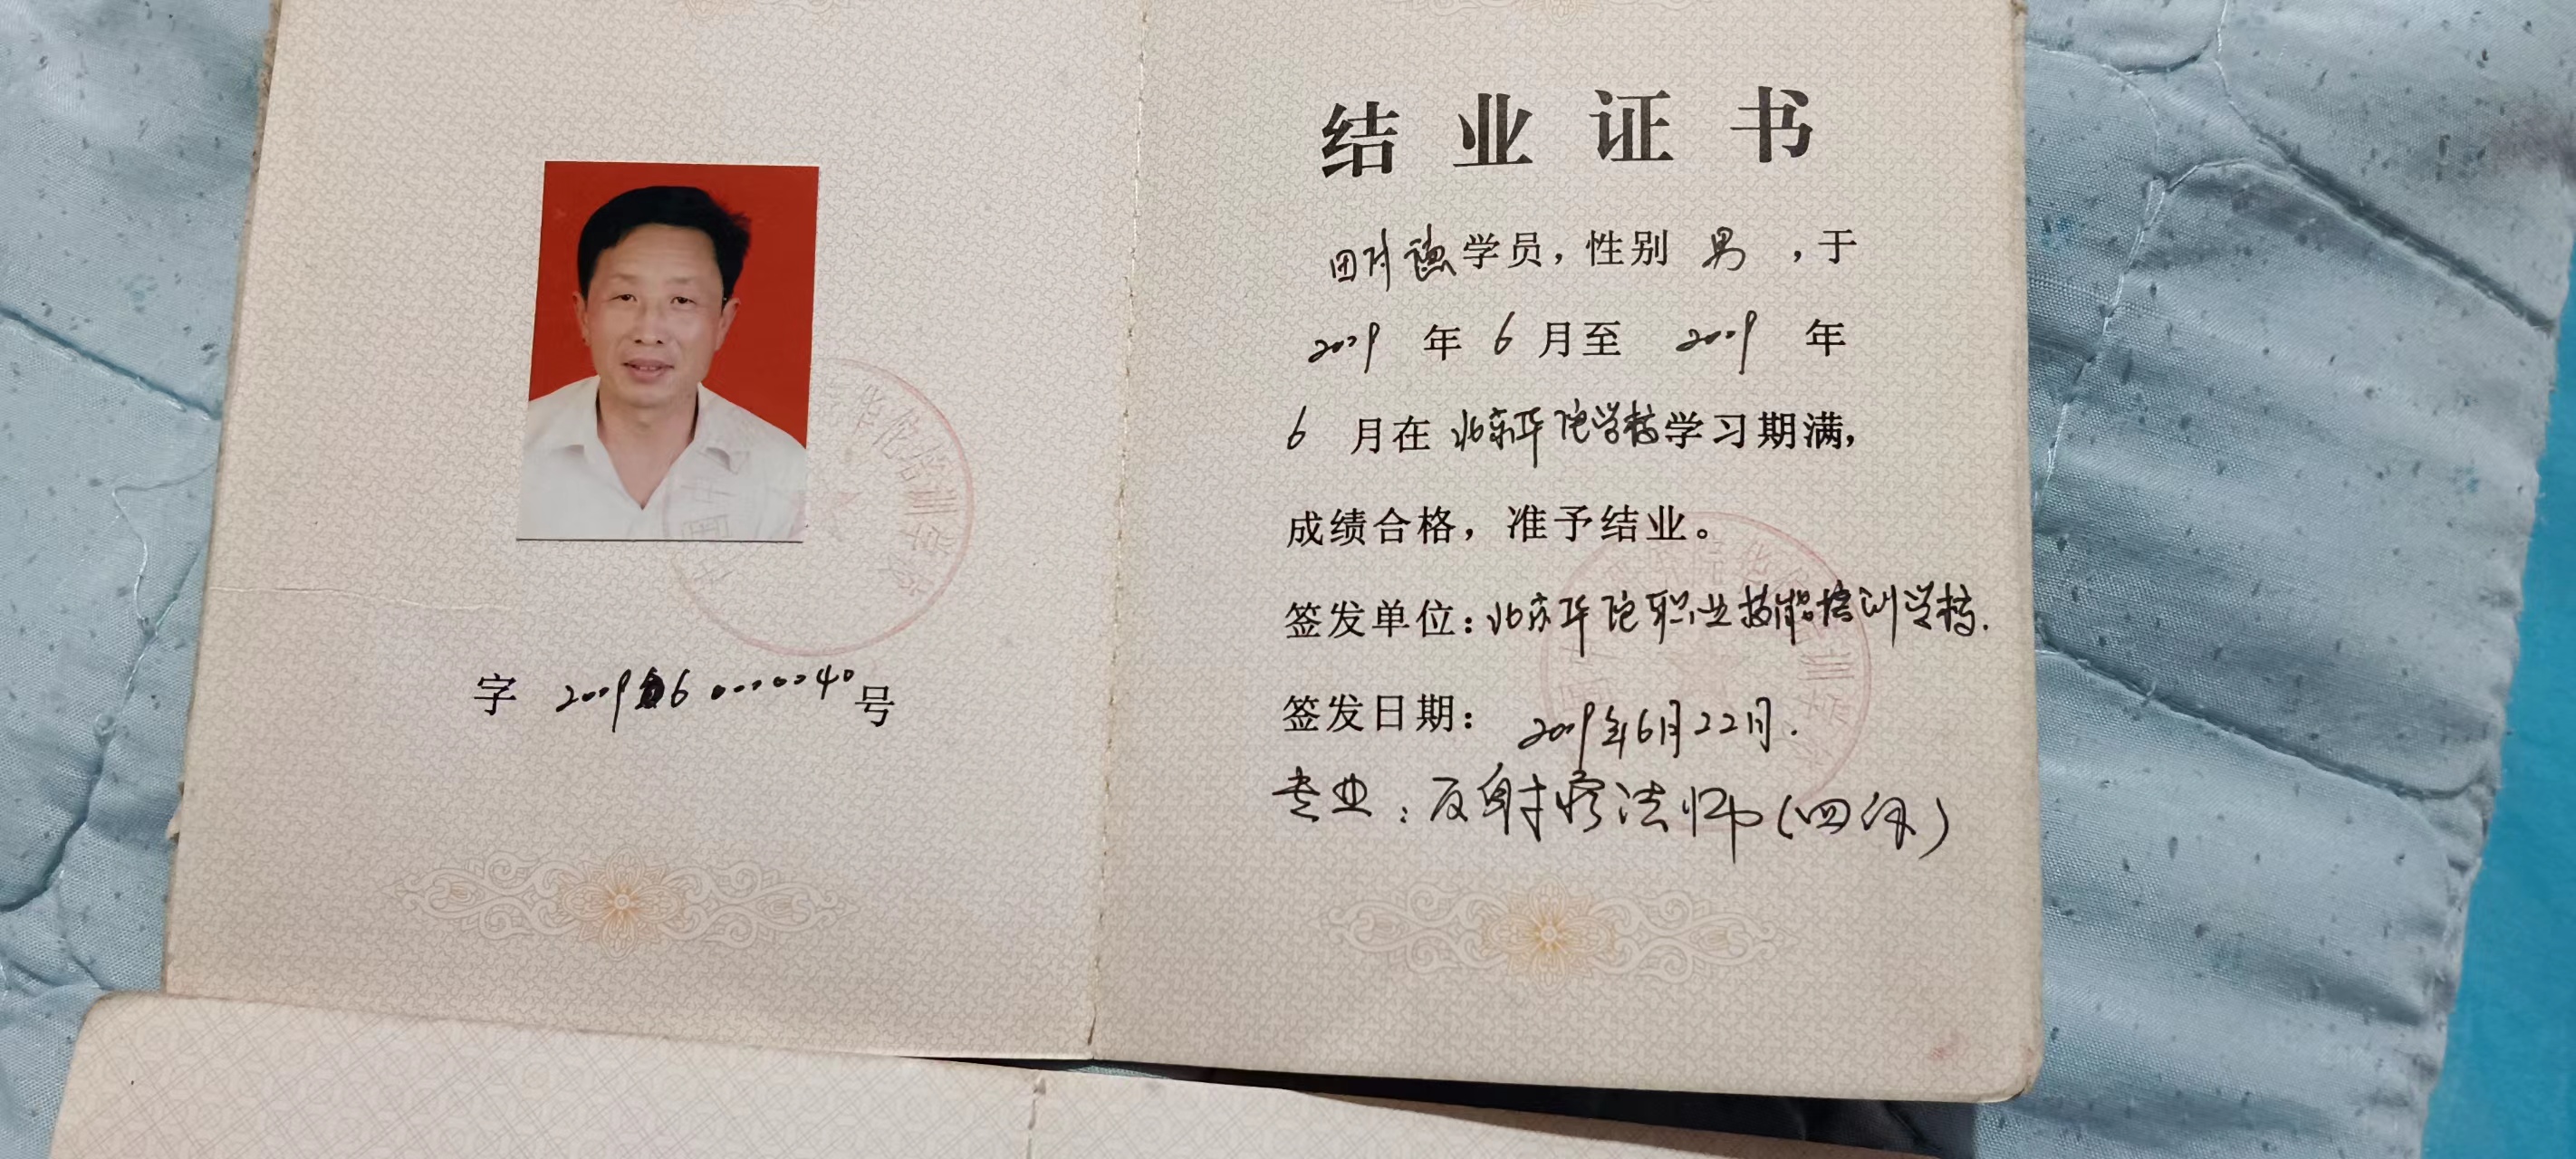 字 2009第60000040号
结业证书
学员，性别 男 ，于
2009 年 6 月至 2009 年
6 月在 北京华佗学校学习期满，
成绩合格，准予结业。
签发单位：北京华佗职业技能培训学校.
签发日期： 2009年6月22日.
专业：反射疗法师（四级）
华佗培训学校